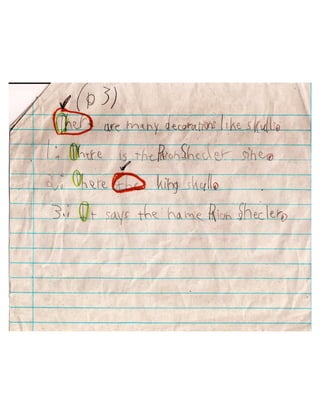 (p 3)
Ther are many decorations like skulls.
1. There is the Rion Shecler sine.
2. There the king skull.
3. It says the name Rion Shecler.